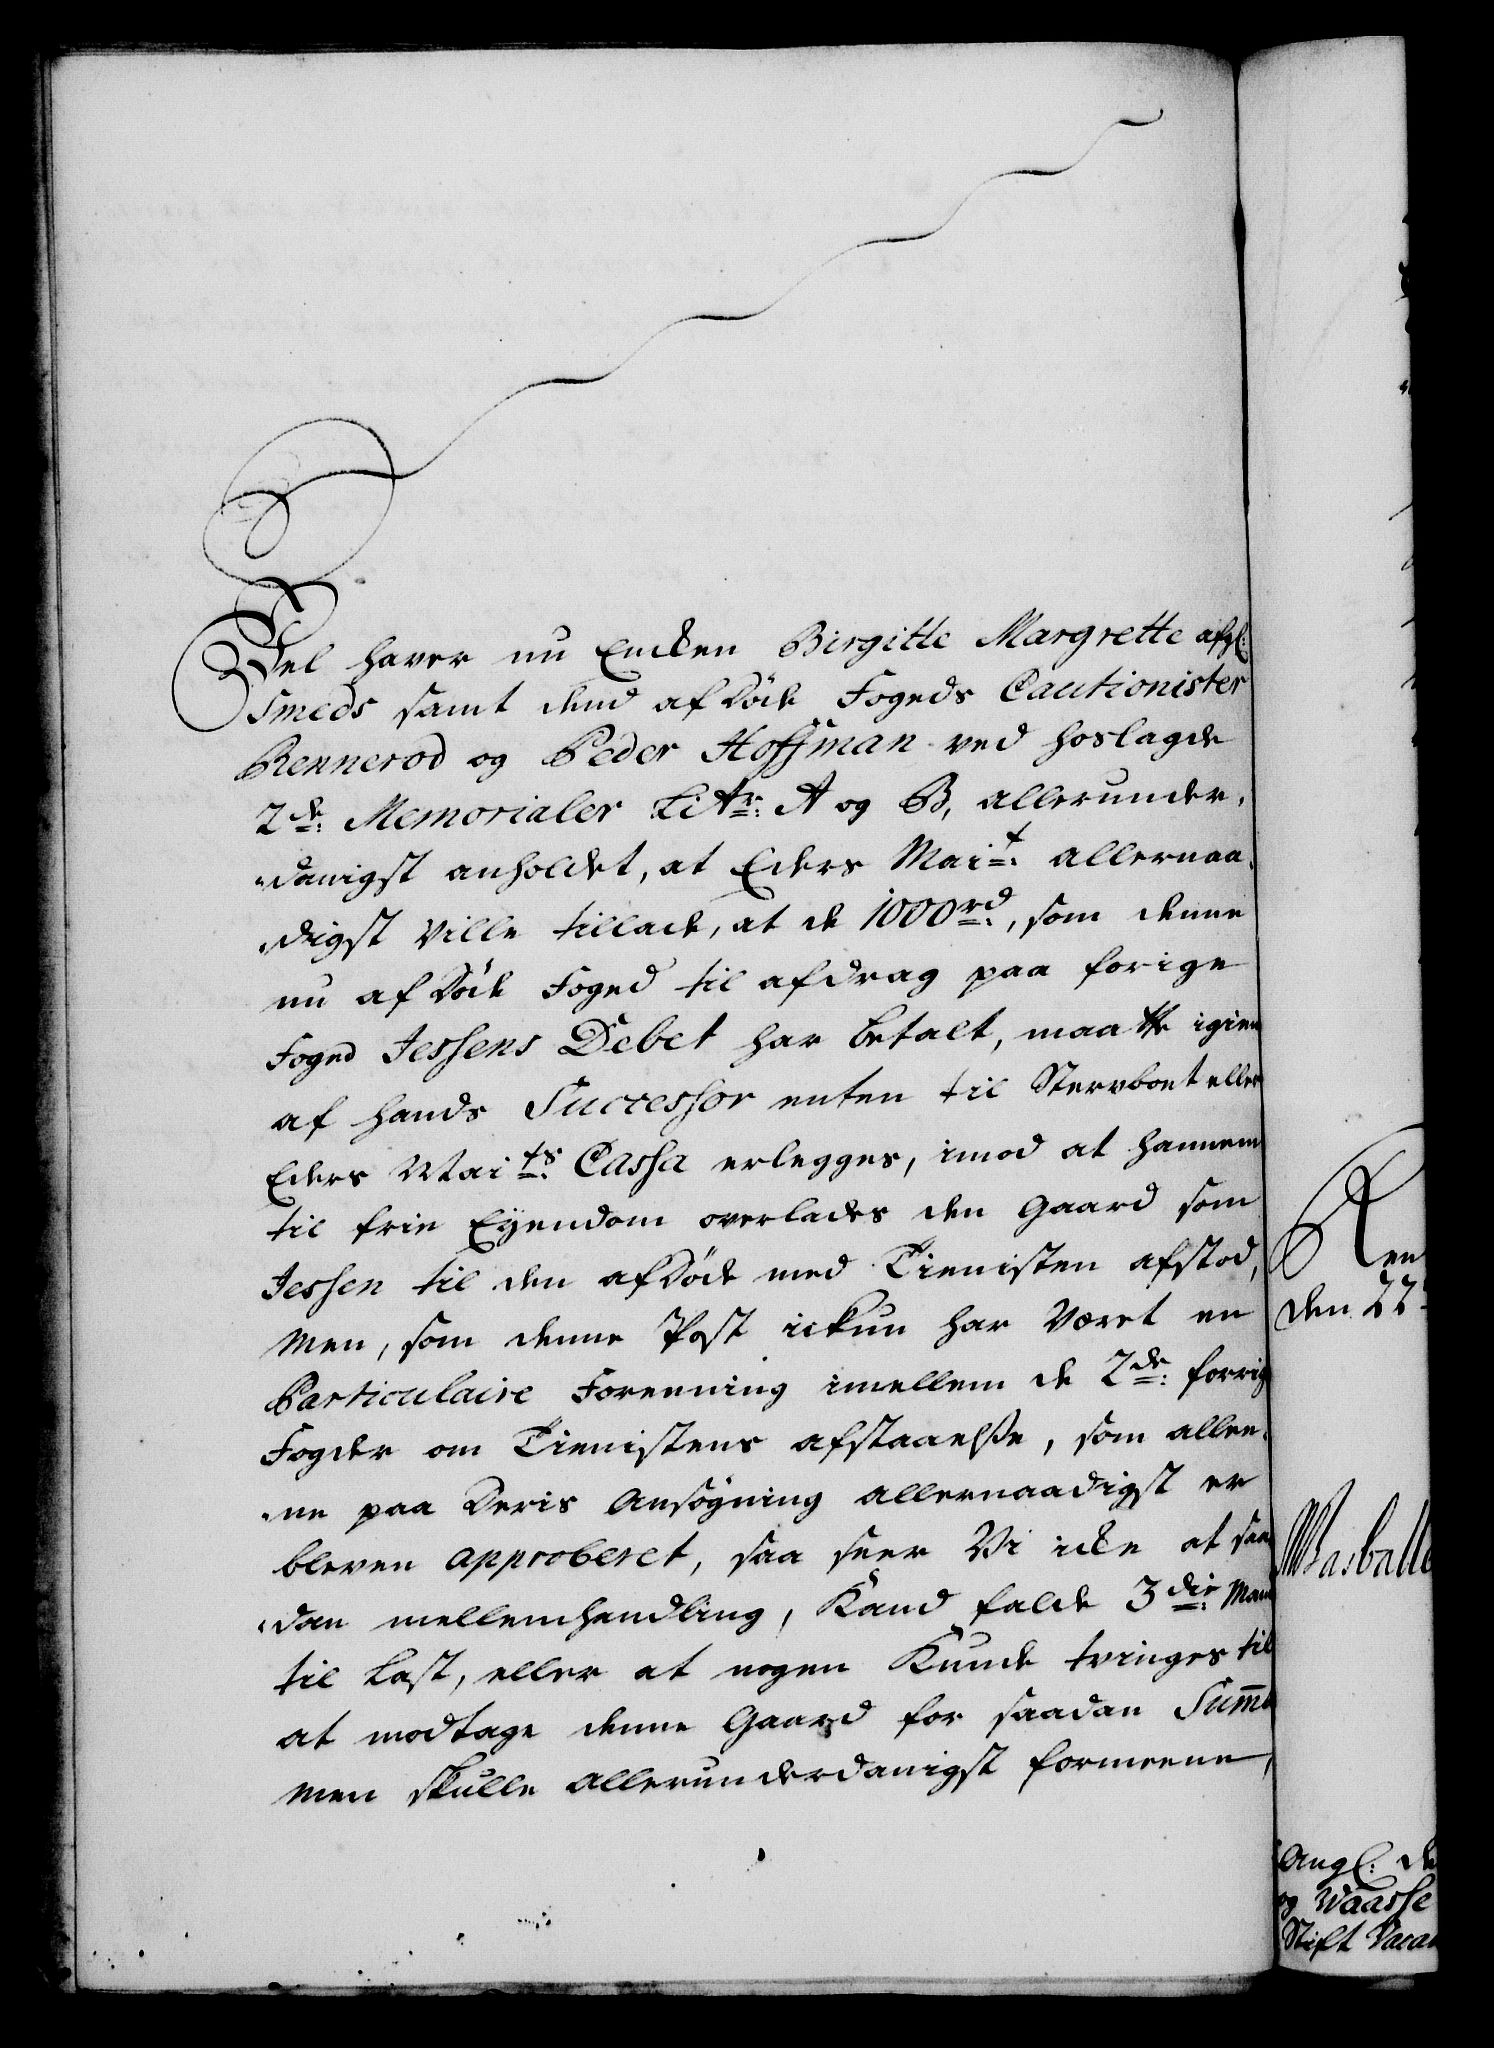 Vel haver nu Encken Birgitte Margrette afgl:
Smeds samt dend afdöde Fogeds Cautionister
Rennerod og Peder Hoffman ved hoslagde
2de: Memorialer Litr: A og B, allerunder-
danigst anholdet, at Eders Mait: allernaa-
digst ville tillade, at de 1000rd:, som denne
nu afdöde Foged til afdrag paa forige
Foged Jessens Debet har betalt, maatte igien
af hands Successor enten til Stervboet eller
Eders Maits: Cassa erlegges, imod at hannem
til frie Eyendom overlades den Gaard som
Jessen til den afdöde med Tienisten afstod,
Men, som denne Post ickun har været en
Particulaire Foreening imellem de 2de: forrig
Fogder om Tienistens afstaaelse, som allee-
ne paa deris Ansøgning allernaadigst er
bleven approberet, saa seer Vi icke at saa
dan mellemhandling, Kand falde 3die: Mand
til Last, eller at nogen Kunde tvinges til
at modtage denne Gaard for saadan Summa
men skulle allerunderdanigst formeene,
Ren
den 22
Angl: de
og Waasse
Stift Vacan